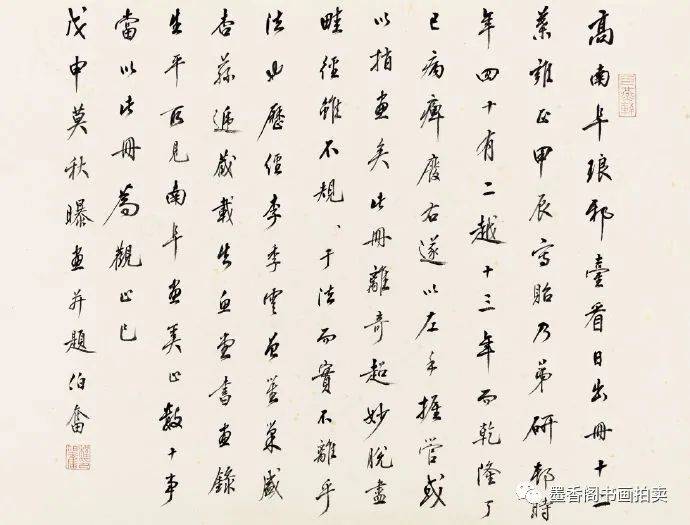 高南阜琅邪臺看日出冊十一
葉雍正甲辰寫貽乃弟研邨時
年四十有二越十三年而乾隆丁
巳病痺廢右遂以左手握管或
以指畫矣此冊離奇超妙脫盡
畦徑雖不規、于法而實不離乎
法也歷經李季雲盛
杏蓀遞藏載書畫錄
生平所見南阜畫美止數十事
當以此冊為觀止已
戊申莫秋曝畫并題伯奮
墨香阁书画拍卖